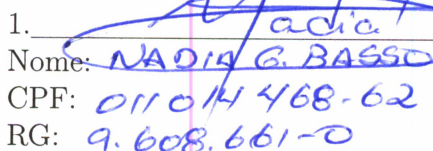 1. adia
Nome: NADIA G. BASSO
CPF: 011014468-62
RG: 9.608.661-0